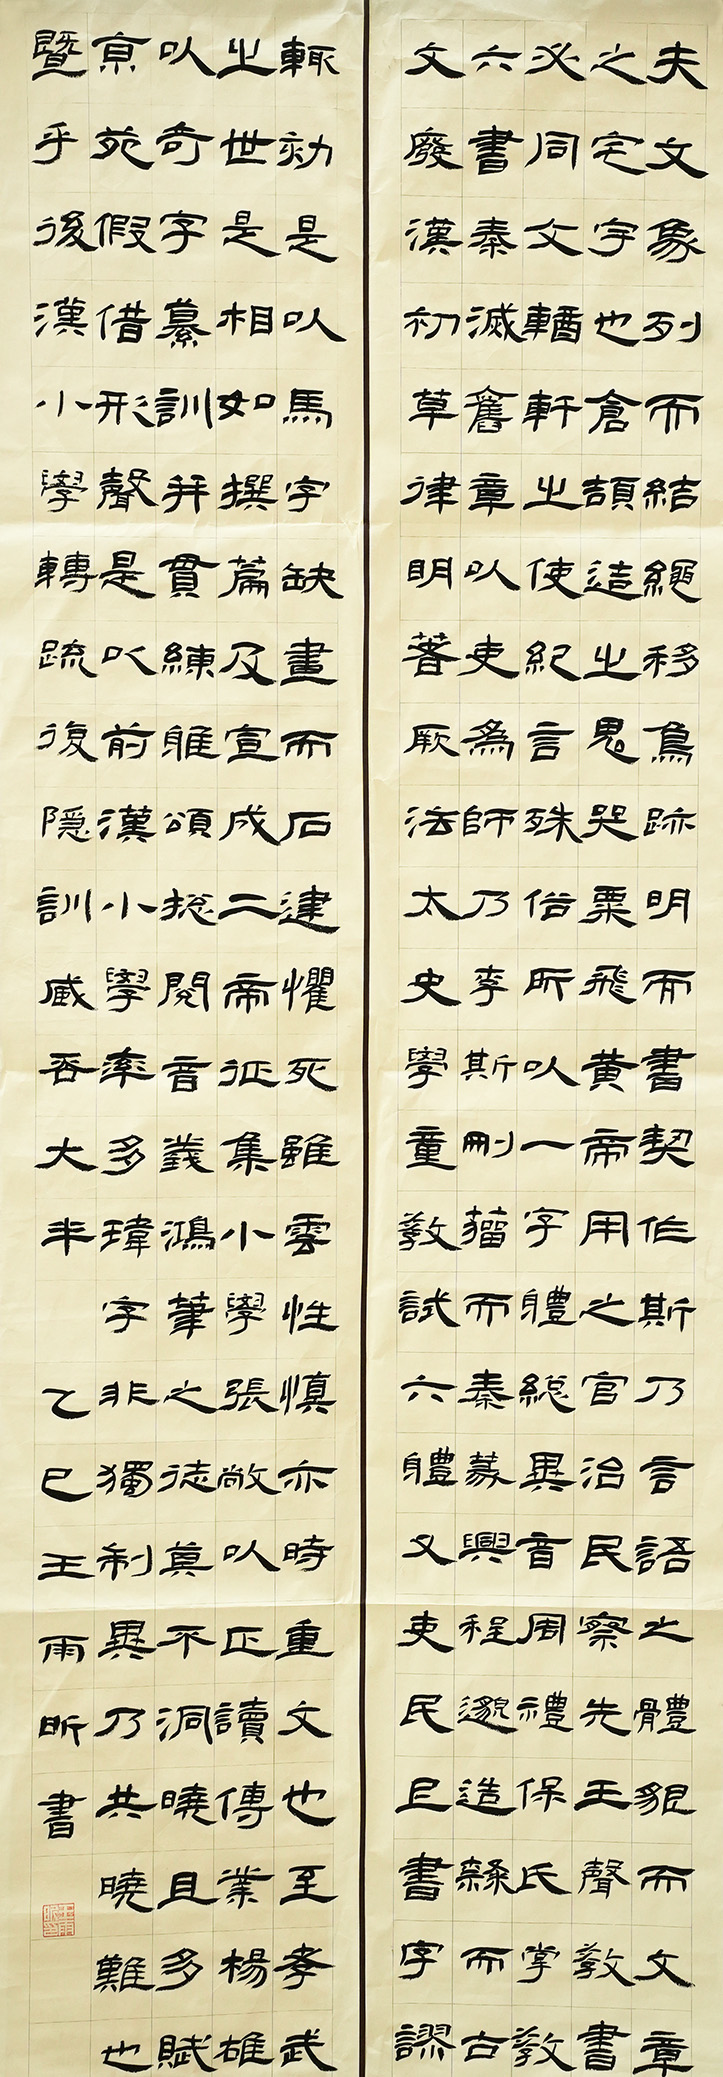 夫文象列而結繩移鳥跡明而書契作斯乃言語之體貌而文章
之宅宇也倉頡造之鬼哭粟飛黃帝用之官治民察先王聲教書
必同文輶軒之使紀言殊俗所以一字體總異音周禮保氏掌教
六書秦滅舊章以吏為師乃李斯刪籀而秦篆興程邈造隸而古
文廢漢初草律明著厥法太史學童教試六體又吏民上書字謬
輒劾是以馬字缺畫而石建懼死雖雲性慎亦時重文也至孝武
之世是相如撰篇及宣成二帝征集小學張敞以正讀傳業楊雄
以奇字纂訓并貫練雅頌總閱音義鴻筆之徒莫不洞曉且多賦
京苑假借形聲是以前漢小學率多瑋字非獨制異乃共曉難也
暨乎後漢小學轉疏復隱訓臧否大半 乙巳王雨昕書